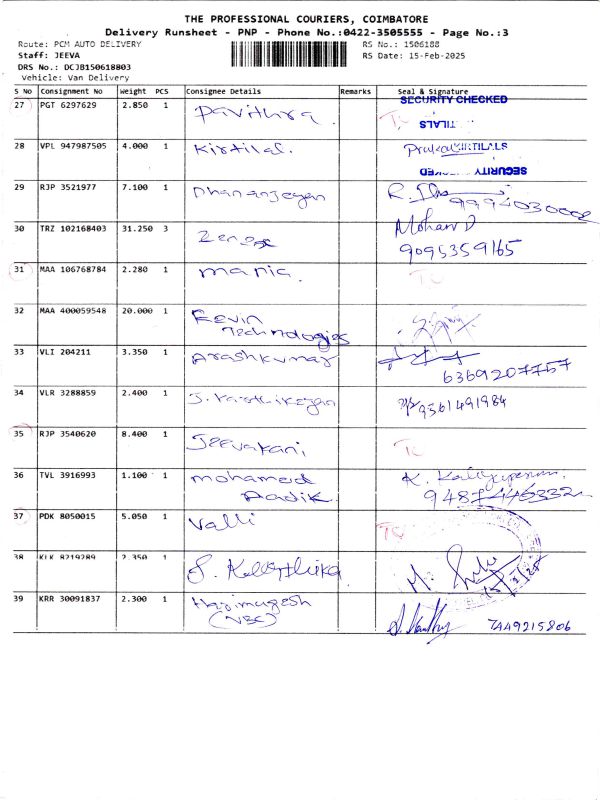 THE PROFESSIONAL COURIERS, COIMBATORE
Delivery Runsheet - PNP - Phone No.:0422-3505555 - Page No.:3
Route: PCM AUTO DELIVERY RS No.: 1506188
Staff: JEEVA RS Date: 15-Feb-2025
DRS No.: DCJB150618803
Vehicle: Van Delivery
S No Consignment No Weight PCS Consignee Details Remarks Seal & Signature
SECURITY CHECKED
27 PGT 6297629 2.850 1 Pavithra
28 VPL 947987505 4.000 1 Kirtilal. KIRTILALS
SECURITY
29 RJP 3521977 7.100 1 Dhananjeyan
30 TRZ 102168403 31.250 3 Mohan D
9095359165
31 MAA 106768784 2.280 1 mania
32 MAA 400059548 20.000 1 Kevin
Technologies
33 VLI 204211 3.350 1 Arashkumar
6369207757
34 VLR 3288859 2.400 1 J. Karthikeyan 9361491984
35 RJP 3540620 8.400 1 Jeevakani
36 TVL 3916993 1.100 1 mohamed
Aadik
37 PDK 8050015 5.050 1 Valli
38 KLK 8219289 2.350 1
39 KRR 30091837 2.300 1 Harimugesh
(VBC) 7449215806